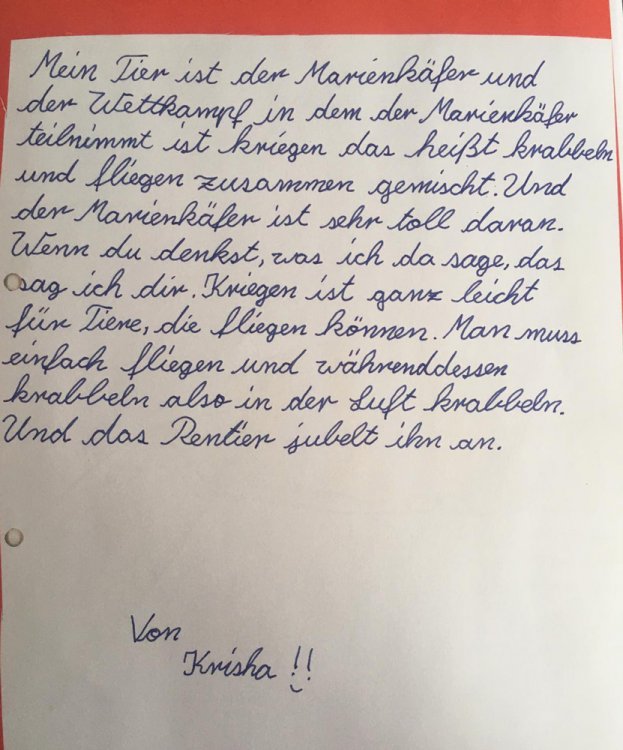 Mein Tier ist der Marienkäfer und
der Wettkampf in dem der Marienkäfer
teilnimmt ist kriegen das heißt krabbeln
und fliegen zusammen gemischt. Und
der Marienkäfer ist sehr toll daran.
Wenn du denkst, was ich da sage, das
sag ich dir. Kriegen ist ganz leicht
für Tiere, die fliegen können. Man muss
einfach fliegen und währenddessen
krabbeln also in der Luft krabbeln.
Und das Rentier jubelt ihn an.
Von
Krisha !!